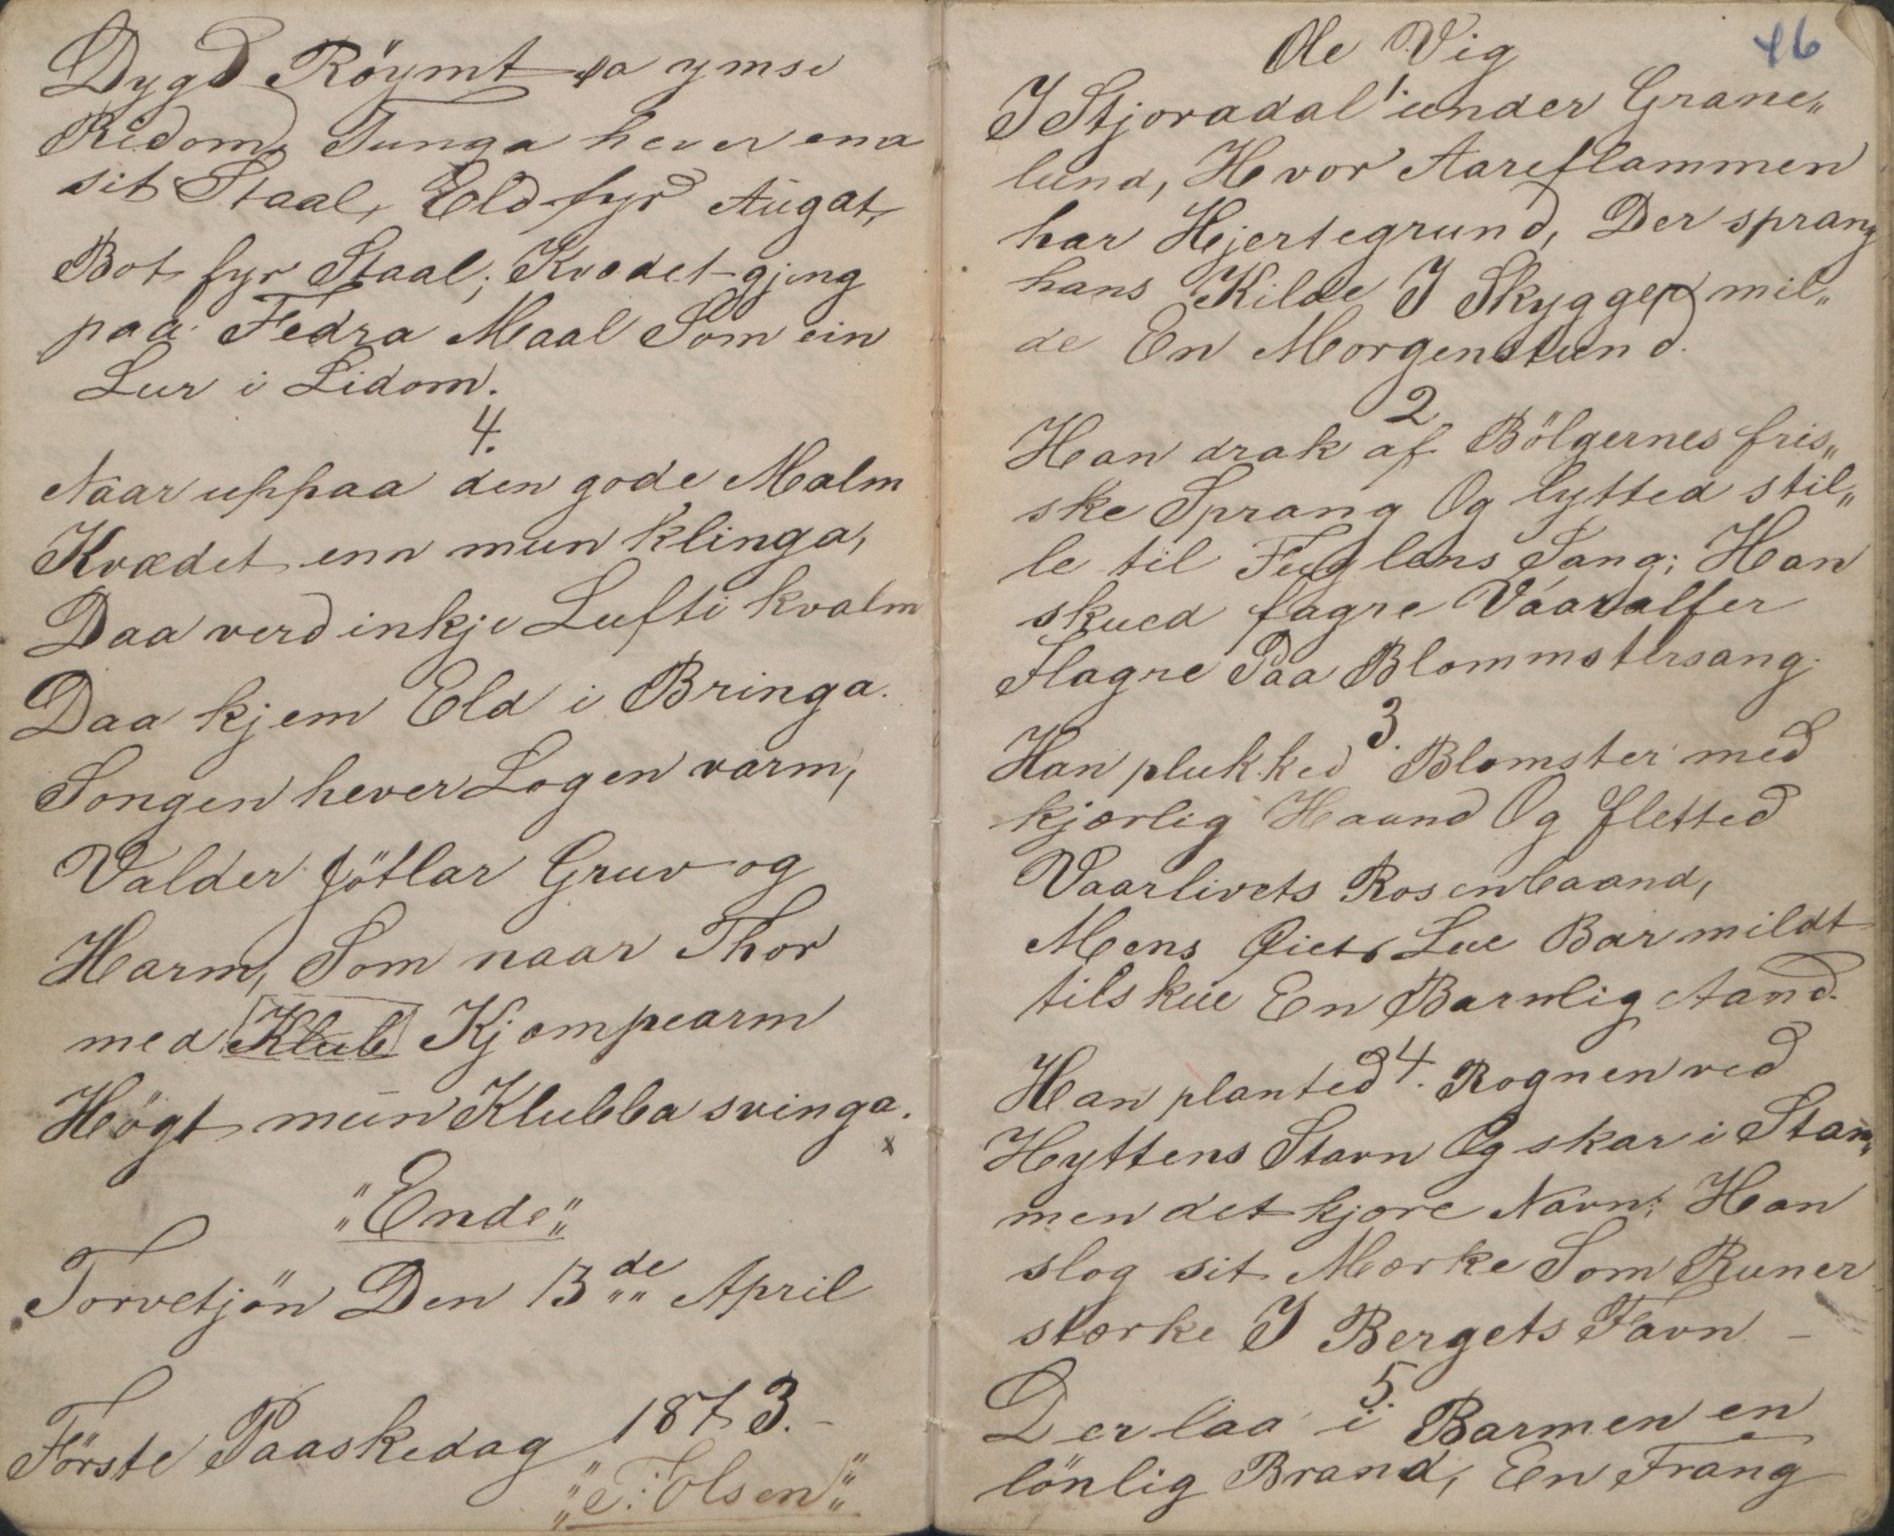 Dygd Röymt paa ymse
Ridom, Tunga hever ena
sit Staal, Eld fyr Augat,
Bot fyr Staal; Kvædet gjeng
paa Fedra Maal Som ein
Lur i Lidom.
4.
Naar uppaa den gode Malm
Kvædet enn mun klinga,
Daa verd inkje Lufti kvalm
Daa kjem Eld i Bringa.
Songen hever Logen varm,
Valder Jötlar Gruv og
Harm, Som naar Thor
med Klub Kjæmpearm
Högt mun Klubba svinga.
x
„Ende„
Torvetjön Den 13de April
Förste Paaskedag 1873.-
„T: Olsen„
46
Ole Vig
1.
I Stjoradal under Grane„
lund, Hvor Aareflammen
har Hjertegrund, Der sprang
hans Kilde I Skyggen mil„
de En Morgenstund.
2
Han drak af Bölgernes fris„
ske Sprang Og lytted stil„
le til Fuglens Sang; Han
skued fagre Vaaralfer
Flagre Paa Blommstersang.
3.
Han plukked Blomster med
kjærlig Haand Og fletted
Vaarlivets Rosenbaand,
Mens Øiets Lue Bar mildt
tilskue En Barnlig Aand.
4.
Han planted Rognen ved
Hyttens Stavn Og skar i Stam„
men det kjære Navn; Han
slog sit Mærke Som Runer
stærke I Bergets Favn -
5.
Der laa i Barmen en
lönlig Brand, En Trang